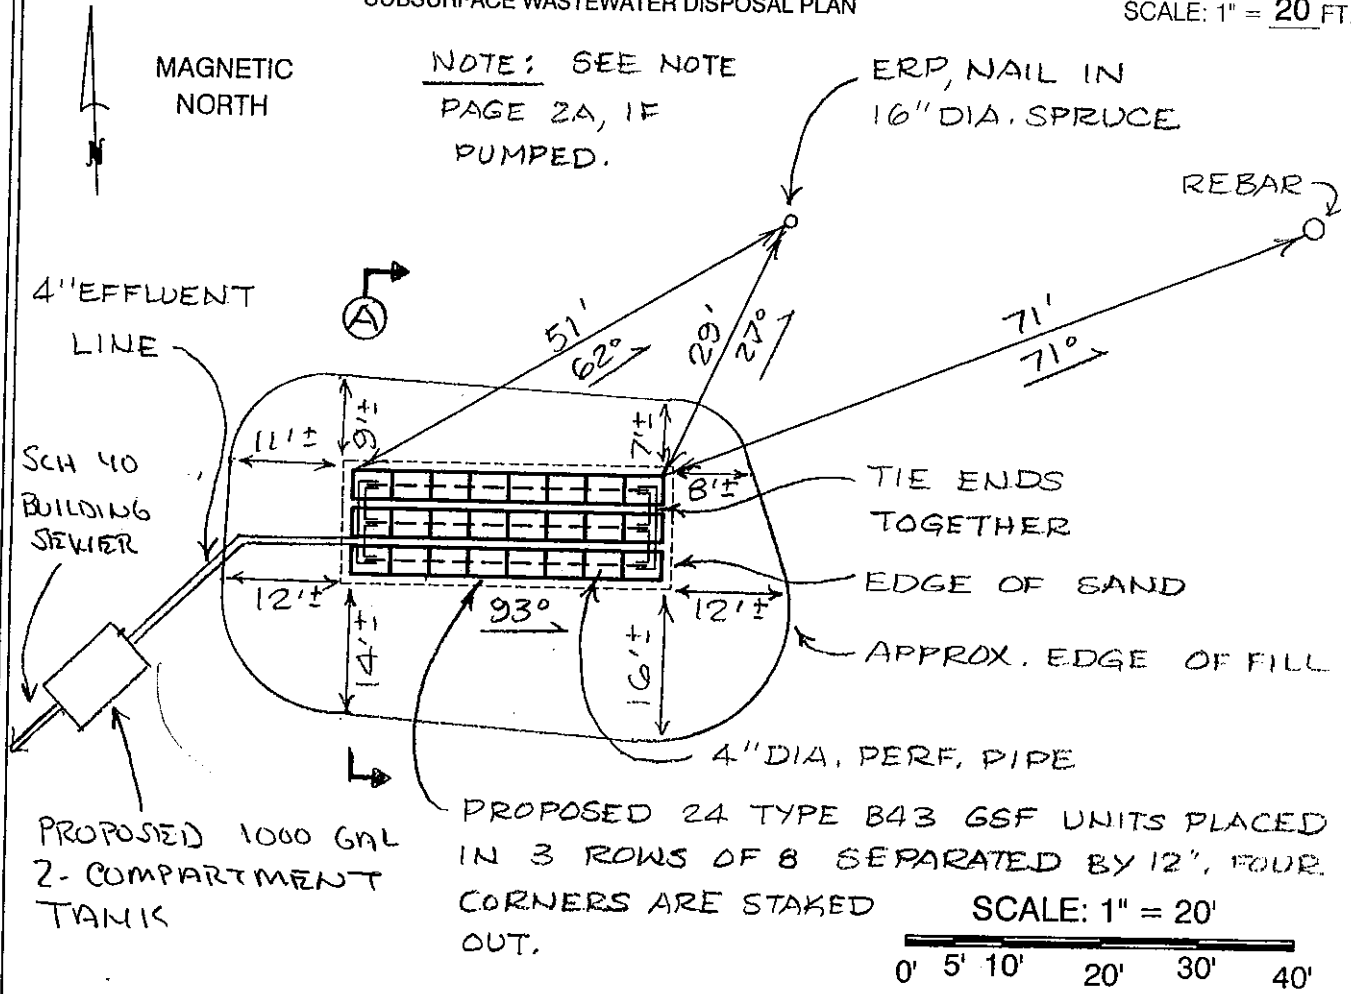 SUBSURFACE WASTEWATER DISPOSAL PLAN
SCALE: 1" = 20 FT.
MAGNETIC
NORTH
N
NOTE: SEE NOTE
PAGE 2A, IF
PUMPED.
ERP, NAIL IN
16" DIA. SPRUCE
REBAR
4" EFFLUENT
LINE
A
51'
62°
29'
27°
71'
71°
SCH 40
BUILDING
SEWER
11'±
9'±
7'±
8'±
TIE ENDS
TOGETHER
EDGE OF SAND
12'±
93°
12'±
14'±
16'±
APPROX. EDGE OF FILL
4" DIA. PERF. PIPE
PROPOSED 1000 GAL
2-COMPARTMENT
TANK
PROPOSED 24 TYPE B43 GSF UNITS PLACED
IN 3 ROWS OF 8 SEPARATED BY 12". FOUR
CORNERS ARE STAKED
OUT.
SCALE: 1" = 20'
0' 5' 10' 20' 30' 40'